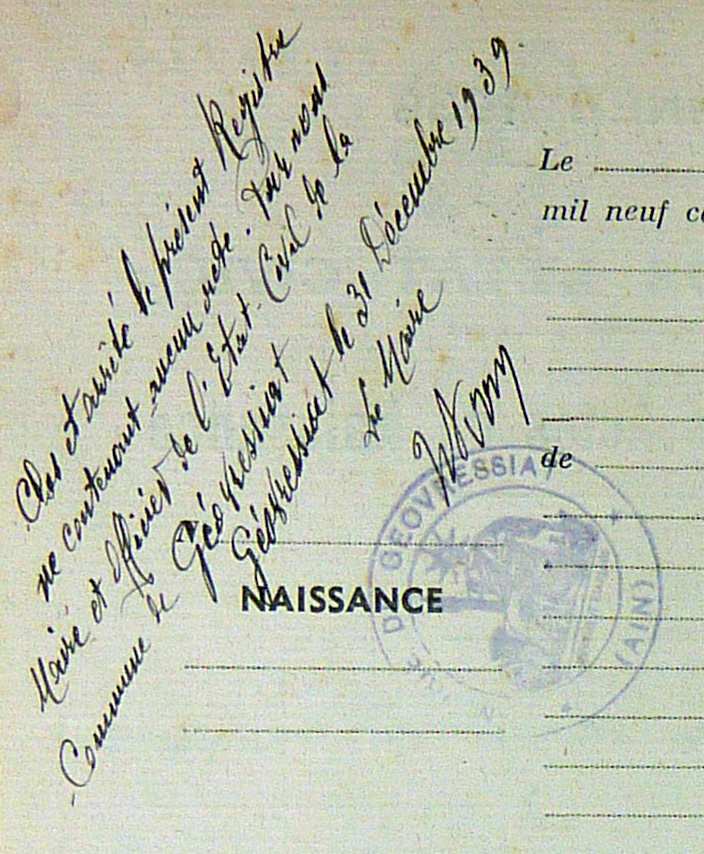 Clos et arrêté le présent Registre
ne contenant aucun acte. Par nous
Maire et Officier de l'Etat-Civil de la
Commune de Géovressiat
Géovressiat le 31 Décembre 1939
Le Maire
Le
mil neuf c
de
NAISSANCE
DE GEOVRESSIAT
(AIN)